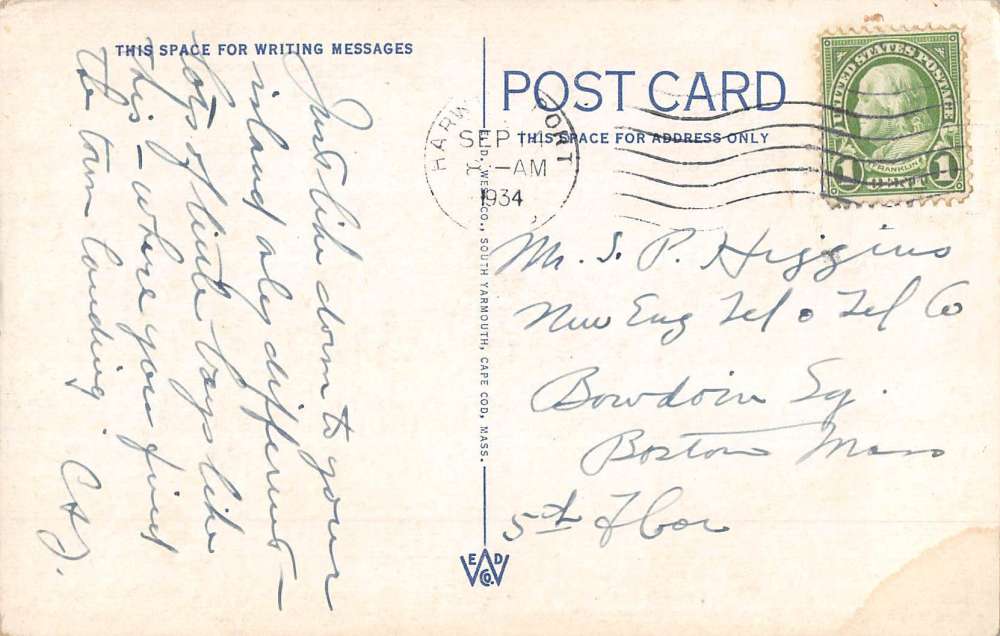 THIS SPACE FOR WRITING MESSAGES
Just like down to your
island only different –
Lots of little bays like
this – where you find
the town landing.
POST CARD
THIS SPACE FOR ADDRESS ONLY
HARW PORT
SEP
-AM
1934
UNITED STATES POSTAGE
FRANKLIN
1 1
E. D. WEST CO., SOUTH YARMOUTH, CAPE COD, MASS.
Mr. S. P. Higgins
New Eng Tel & Tel Co
Bowdoin Sq.
Boston Mass
5th Floor
E D
W
CO.